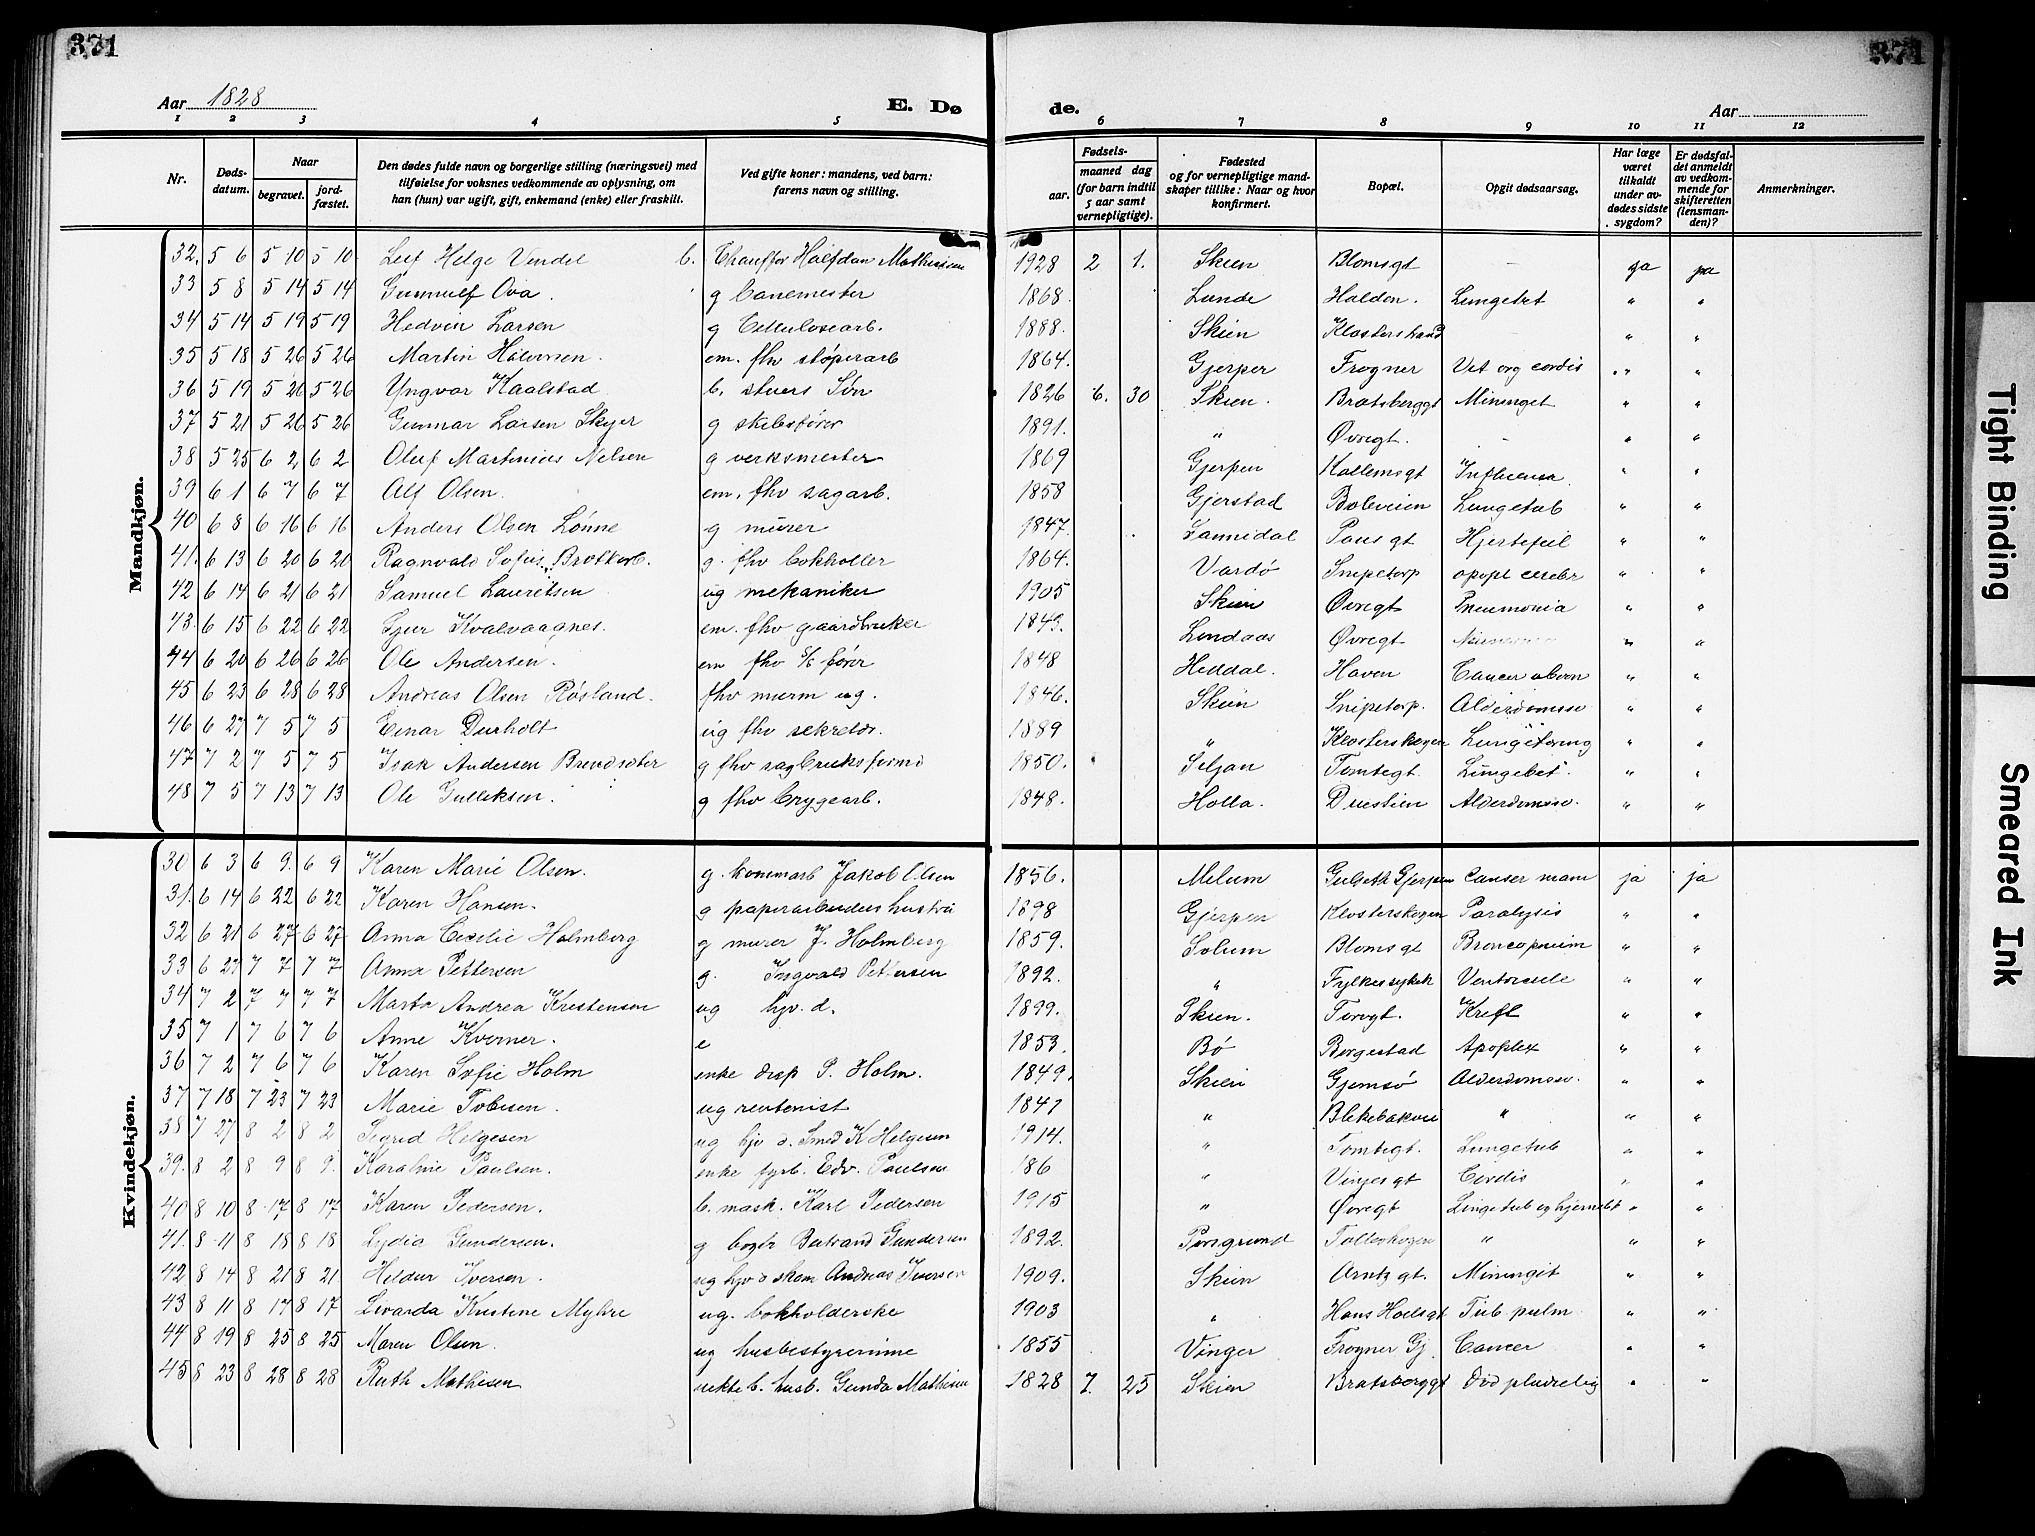 371 371
Aar 1828 E. Dø de. Aar
1 2 3 4 5 6 7 8 9 10 11 12
Nr. Døds-datum. Naar begravet. jord-fæstet. Den dødes fulde navn og borgerlige stilling (næringsvei) med tilføielse for voksnes vedkommende av oplysning, om han (hun) var ugift, gift, enkemand (enke) eller fraskilt. Ved gifte koner: mandens, ved barn: farens navn og stilling. Fødsels- aar. maaned dag (for barn indtil 5 aar samt vernepligtige). Fødested og for vernepligtige mandskaper tillike: Naar og hvor konfirmert. Bopæl. Opgit dødsaarsag. Har læge været tilkaldt under avdødes sidste sygdom? Er dødsfaldet anmeldt av vedkommende for skifteretten (lensmanden)? Anmerkninger.
Mandkjøn.
32. 5 6 5 10 5 10 Leif Helge Vendel b. Chauffør Halfdan Mathisen 1928 2 1. Skien Blomsgt - ja ja
33 5 8 5 14 5 14 Gunnulf Ova. g banemester 1868. Lunde Halden. Lungebet " "
34 5 14 5 19 5 19 Hedvin Larsen g Cellulosearb. 1888. Skien Klosterstrand - " "
35 5 18 5 26 5 26 Martin Halvorsen. em. fhv støperarb 1864. Gjerpen Frogner Vit org cordis " "
36 5 19 5 26 5 26 Yngvar Kaalstad b. stuers Søn 1826 6. 30 Skien. Bratsberggt Mininget " "
37 5 21 5 26 5 26 Gunnar Larsen Skyer g skibsfører 1891. " Øvregt. - " "
38 5 25 6 2 6 2 Oluf Martinius Nelsen g verksmester 1869 Gjerpen Kollemsgt Influensa " "
39 6 1 6 7 6 7 Alf Olsen. em. fhv sagarb. 1858 Gjerstad Boleveien Lungetub " "
40 6 8 6 16 6 16 Anders Olsen Lønne g murer 1847. Sannidal Pous gt Hjertefeil " "
41. 6 13 6 20 6 20 Ragnvald Sofus g. fhv bokholler 1864. Vardø Snipetorp apopl cerebr " "
42 6 14 6 21 6 21 Samuel Lauritsen ug mekaniker 1905 Skien Øvregt Pneumonia " "
43. 6 15 6 22 6 22 Sjur Kvalvaagnes. em. fhv gaardbruker 1843. Lindaas Øvregt " "
44 6 20 6 26 6 26 Ole Andersen. em fhv S/S fører 1848 Heddal. Haven Cancer " "
45 6 23 6 28 6 28 Andreas Olsen Røsland. fhv murm ug. 1846. Skien Snipetorp. Alderdomssv " "
46 6 27 7 5 7 5 Einar Durholt ug fhv sekretær. 1889 " Klosterskogen Lungetæring " "
47 7 2 7 5 7 5 Isak Andersen Brendsæter g fhv sagbruksformd 1850. Siljan Tomtegt. Lungebet. " "
48 7 5 7 13 7 13 Ole Gulliksen. g fhv brygearb. 1848. Holla. Duestien Alderdomssv. " "
Kvindekjøn.
30 6 3 6 9. 6 9 Karen Marie Olsen. g. kommarb Jakob Olsen 1856. Melum Gulseth Gjerpen Canser mam ja ja
31. 6 14 6 22 6 22 Karen Hansen. g paperarbeiders hustru 1898 Gjerpen Klosterskogen Paralysis " "
32 6 21 6 27 6 27 Anna Cecilie Holmberg g murer J. Holmberg 1859. Solum Bloms gt Broncopneum " "
33 6 27 7 7 7 7 Anna Pettersen g. Ingvald Pettersen 1892. " Fylkessykeh " "
34 7 2 7 7 7 7 Marta Andrea Kristensen ug hjv. d. 1899. Skien. Torvgt. Kreft " "
35 7 1 7 6 7 6 Anne Kverner. e 1853. Bø Borgestad Apoplex " "
36 7 2 7 6 7 6 Karen Sofie Holm enke disp P. Holm. 1849. Skien Gjemsø Alderdomssv. " "
37 7 18 7 23 7 23 Marie Tobisen. ug rentenist 1847 " Blekebakvei " " "
38 7 27 8 2 8 2 Sigrid Helgesen ug hjv d. Smed K Helgesen 1914. " Tomtegt. Lungetub " "
39. 8 2 8 9 8 9. Karaline Paulsen. enke fyrb. Edv. Paulsen 186 " Vinjesgt Cordis " "
40 8 10 8 17 8 17 Karen Pedersen. b. mask. Karl Pedersen 1915 " Øvregt Lungetub og hjernebt " "
41. 8 11 8 18 8 18 Lydia Gundersen. g bogtr Bertrand Gundersen 1892. Porsgrund Follaskogen " " "
42 8 14 8 21 8 21. Heldur Iversen. ug hjv d skom Andreas Iversen 1909. Skien Arntz gt. Miningit " "
43 8 11 8 17 8 17 Livarda Kristine Myhre ug. bokholderske 1903 " Hans Hoelsgt Tub pulm " "
44 8 19 8 25 8 25 Maren Olsen. ug husbestyrerinne 1855 Vinger Frogner Gj. Cancer " "
45 8 23 8 28 8 28 Ruth Mathisen uekte b. husb. Gunda Mathisen 1828 7. 25 Skien Bratsberggt Død pludselig " "
Tight Binding
Smeared Ink